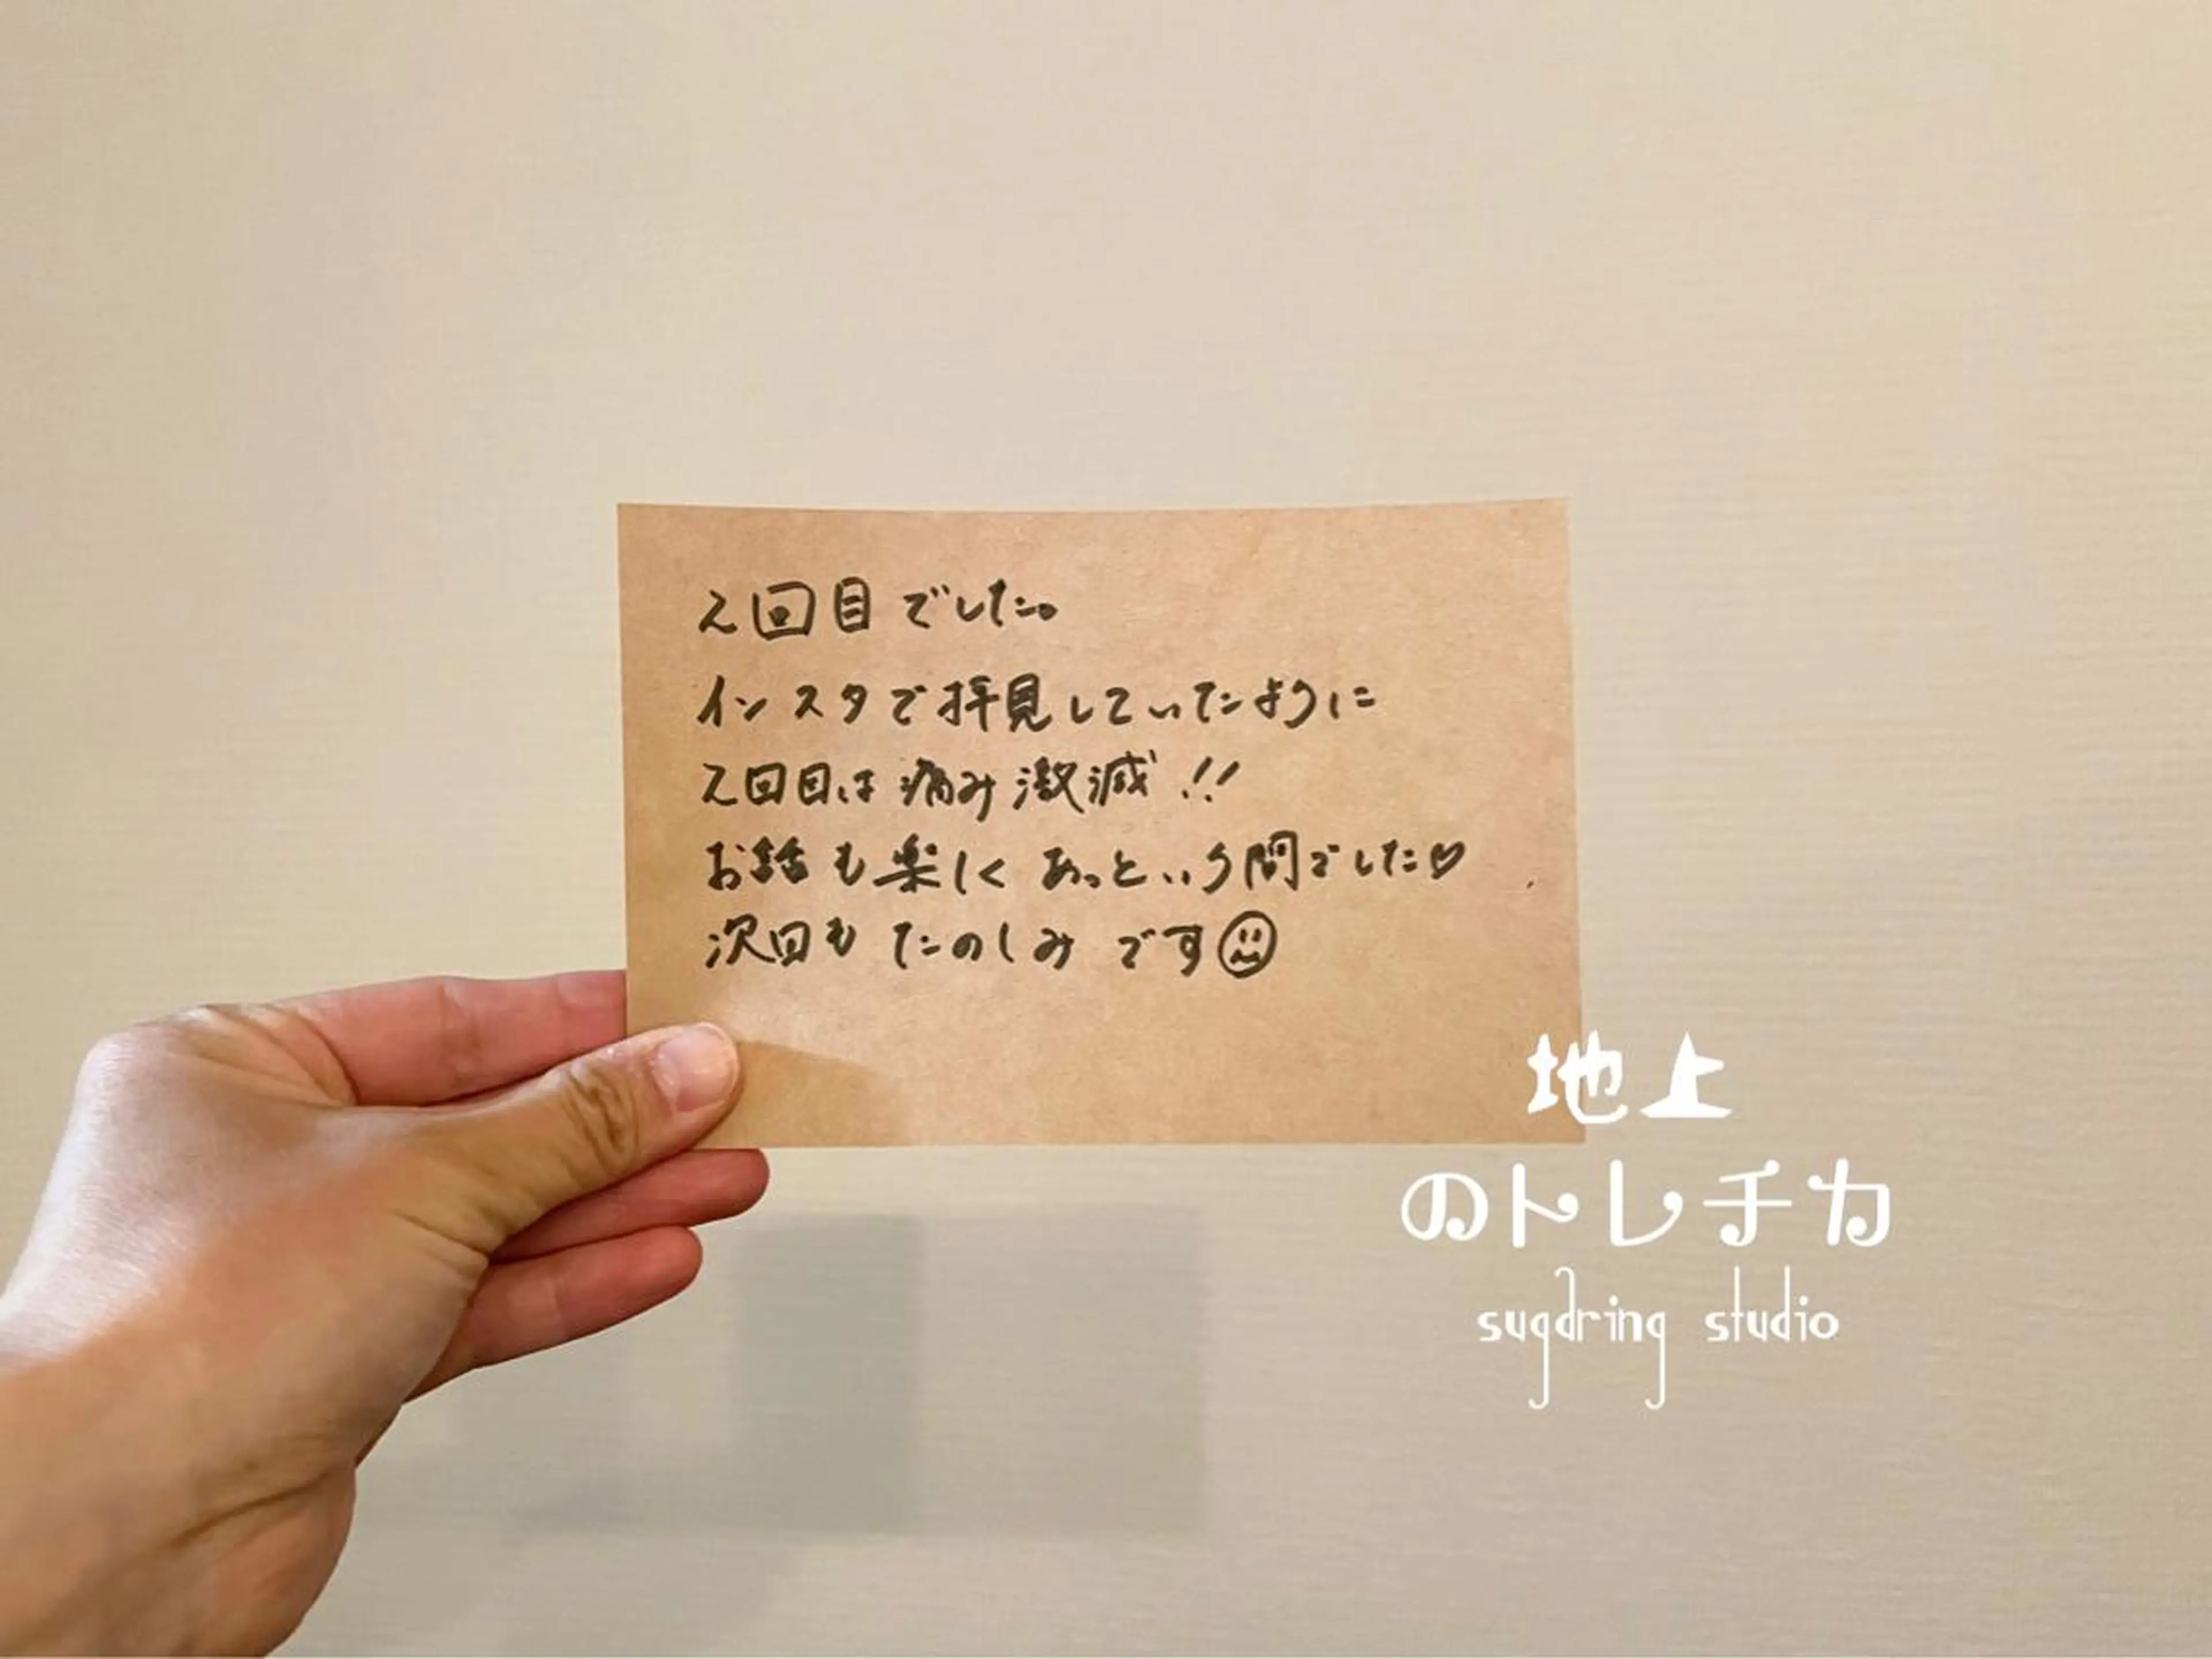 2回目でした。
インスタで拝見していたように
2回目は痛み激減!!
お話も楽しくあっという間でした♡
次回もたのしみです☺
地上
のトレチカ
sugaring studio